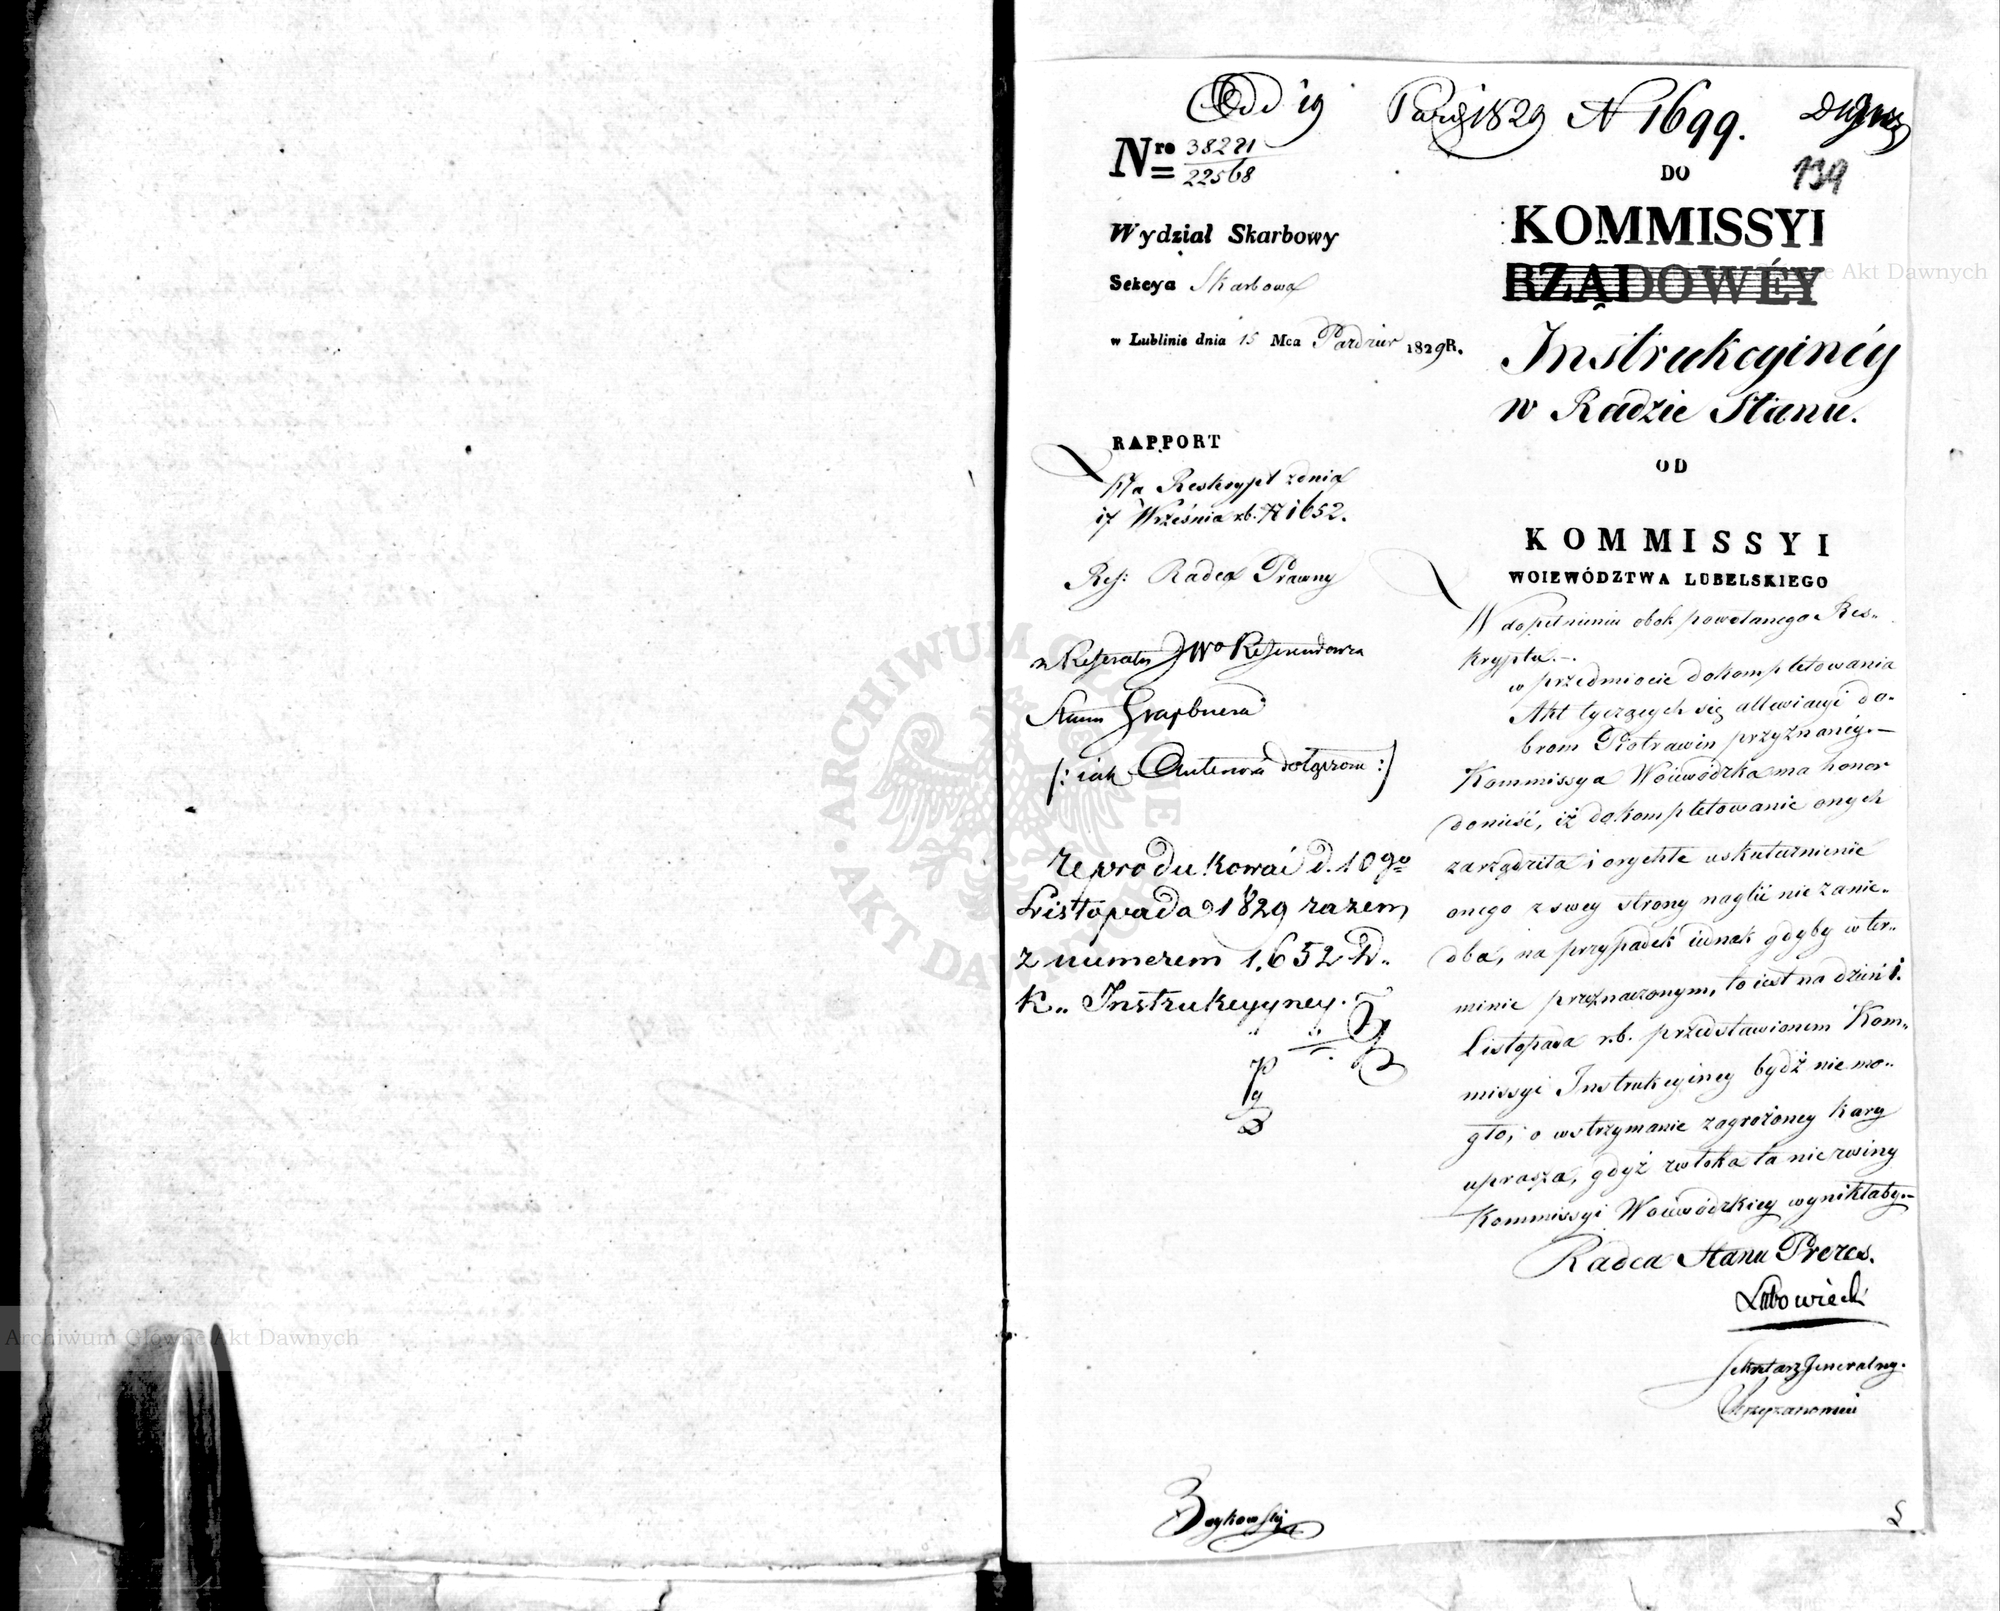 Odd 19 Paźd 1829 N 1699.
139
Nro 38221
22568
Wydział Skarbowy
Sekcya Skarbowa
w Lublinie dnia 15 Mca Paździer 1829 R.
DO
KOMMISSYI
RZĄDOWÉY
Instrukcyinéy
w Radzie Stanu.
OD
KOMMISSYI
WOIEWÓDZTWA LUBELSKIEGO
RAPPORT
Na Reskrypt zdnia
17 Września r.b. N 1652.
Ref: Radca Prawny
z Referatu JWo Referendarza
Stanu Grajbnera
(: iak dołączone :)
Reprodukować d. 10go
Listopada 1829 razem
z numerem 1.652 D.
K. Instrukcyyney.
W dopełnieniu obok powołanego Res-
kryptu.-.
w przedmiocie dokompletowania
Akt tyczących się alluwiacyi do-
brom Piotrawin przyznanéy.-
Kommissya Woiewódzka ma honor
donieść, iż dokompletowanie onych
zarządziła i o rychłe uskutecznienie
onego z swey strony naglić nie zanie-
dba, na przypadek iednak gdyby w ter-
minie przeznaczonym, to iest na dzień 1.
Listopada r.b. przedstawionem Kom-
missyi Instrukcyiney bydź nie mo-
gło, o wstrzymanie zagrożoney kary
uprasza, gdyż zwłoka ta nie zwiny
Kommissyi Woiewódzkiey wynikłaby.-
Radca Stanu Prezes.
Lubowiecki
Sekretarz Jeneralny.
Zaykowski
Archiwum Główne Akt Dawnych
Archiwum Główne Akt Dawnych
ARCHIWUM GŁÓWNE AKT DAWNYCH